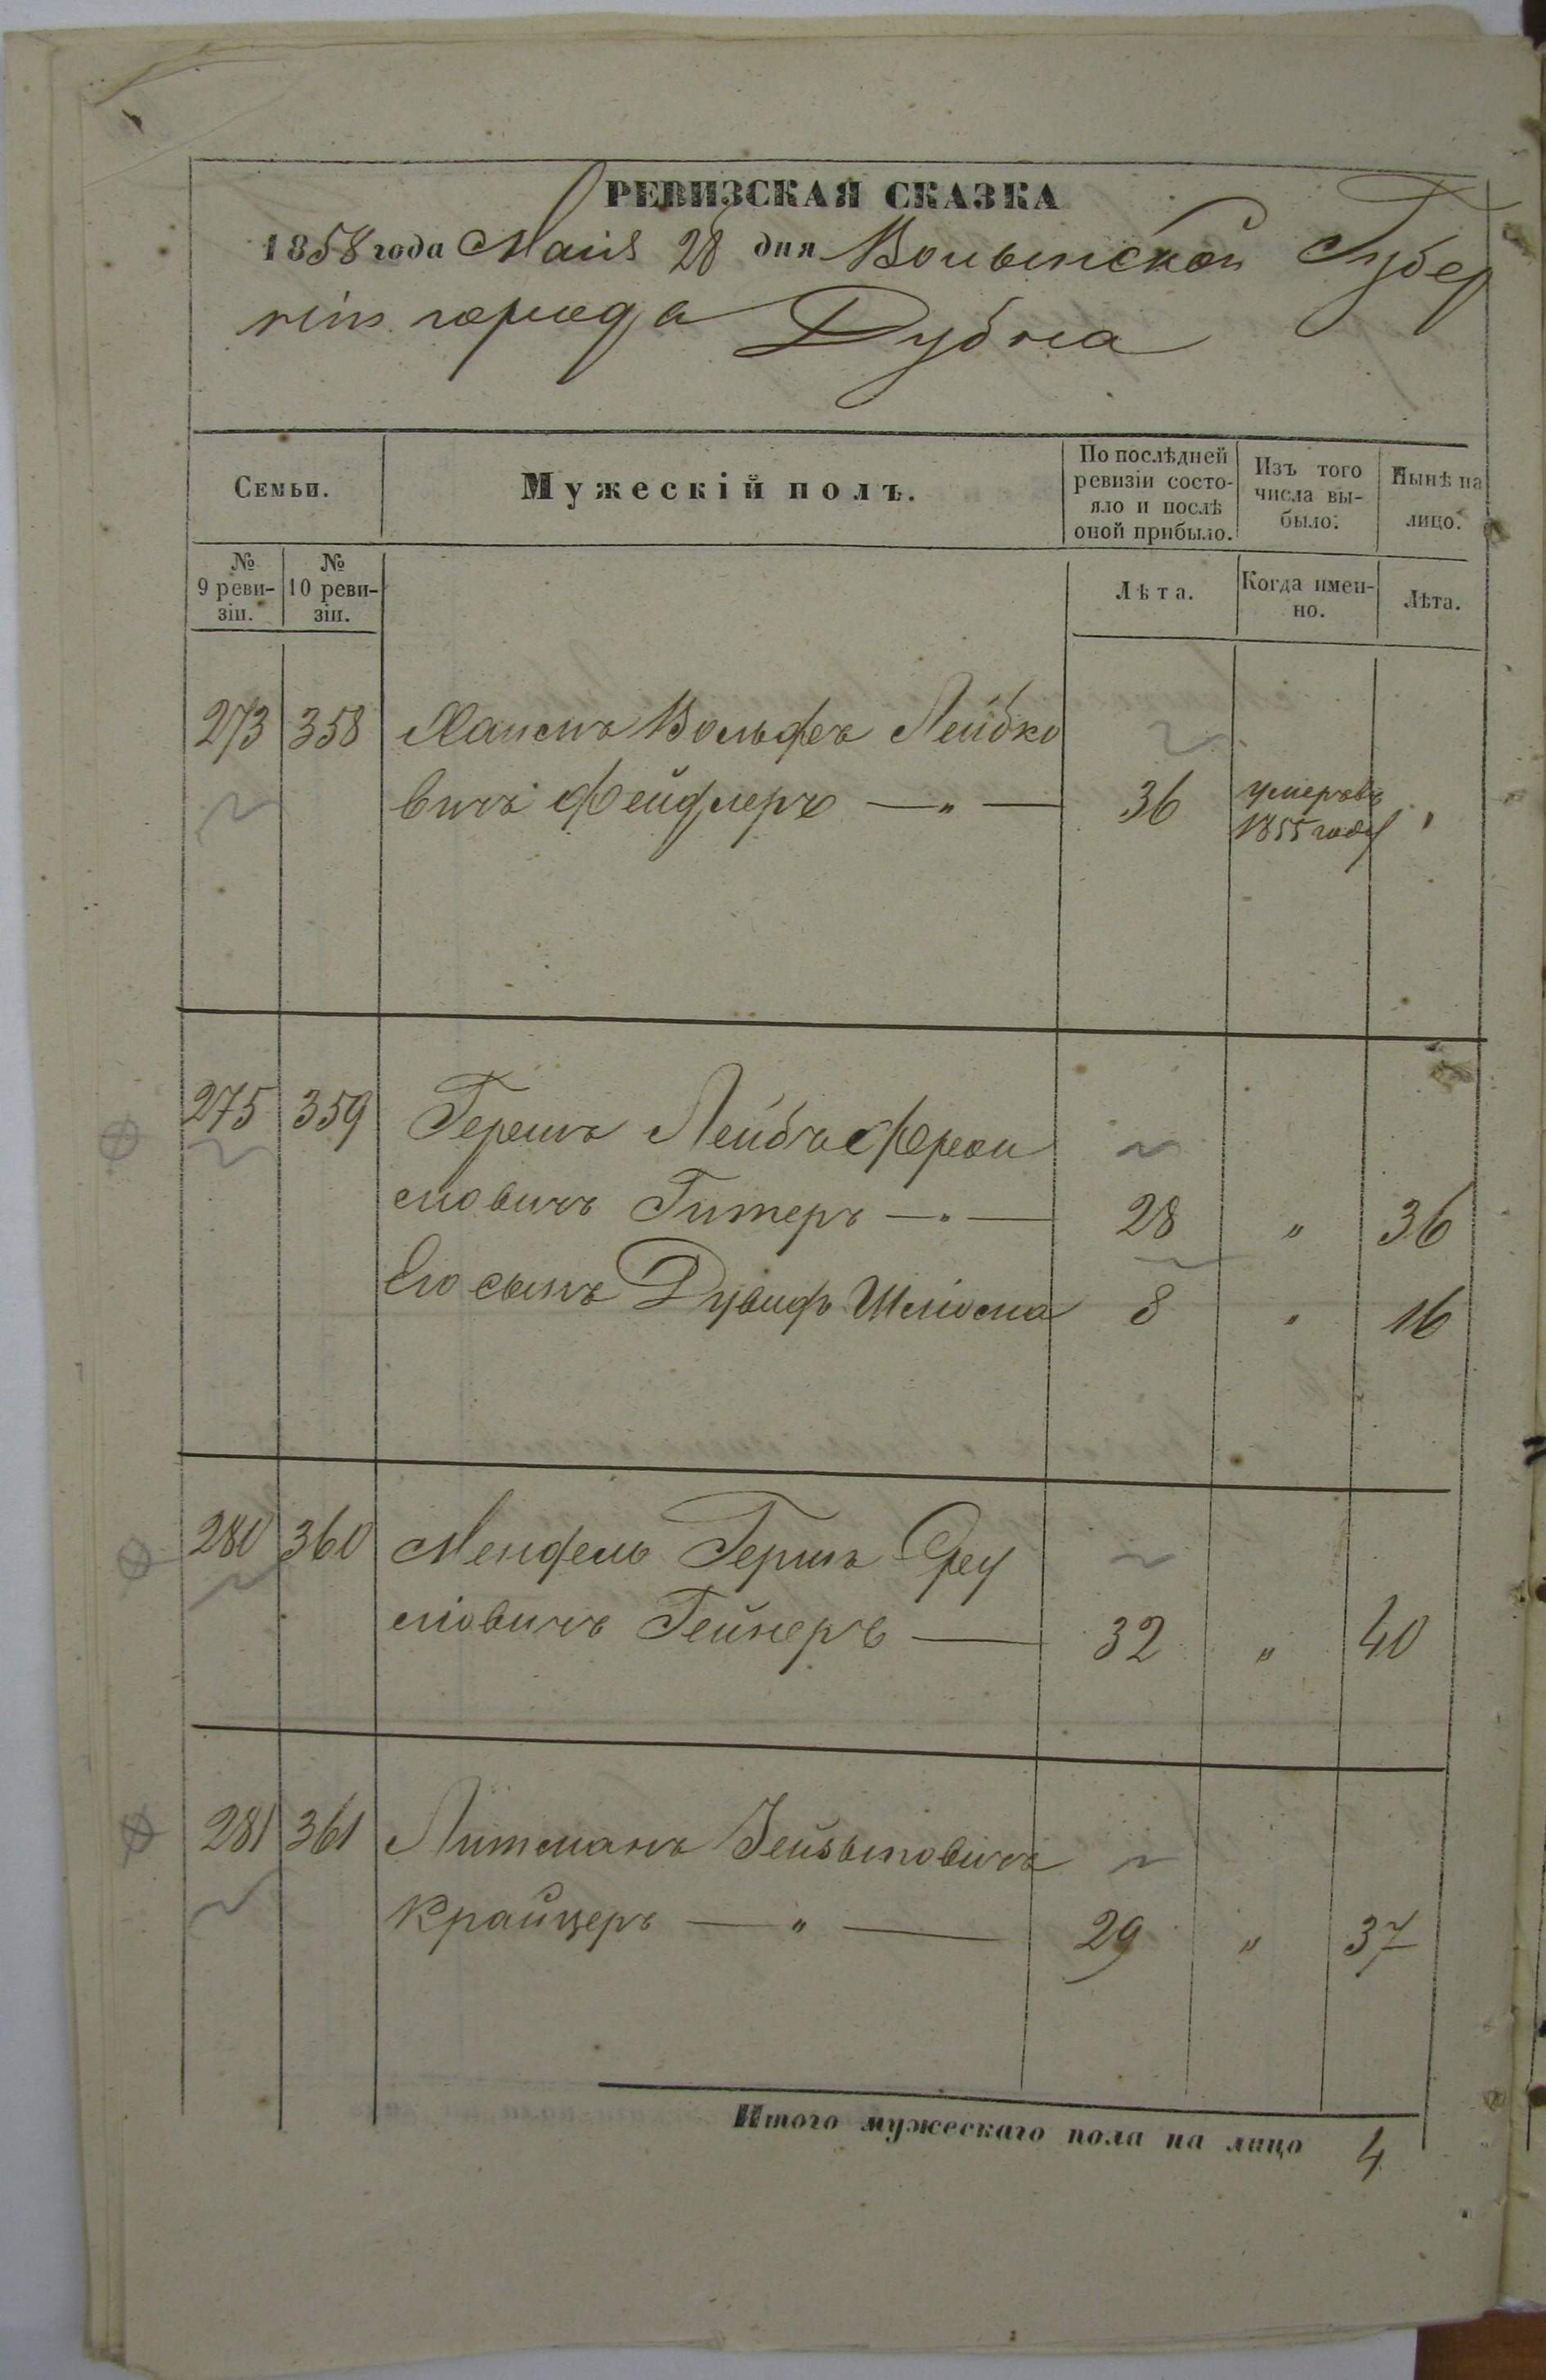 РЕВИЗСКАЯ СКАЗКА
1858 года Маия 28 дня Волынской Губер
ніи города Дубна
Семьи.
Мужескій полъ.
По послѣдней
ревизіи состо-
яло и послѣ
оной прибыло.
Изъ того
числа вы-
было.
Нынѣ на
лицо.
№
9 реви-
зіи.
№
10 реви-
зіи.
Лѣта.
Когда имен-
но.
Лѣта.
273 358 Хаимъ Вольфъ Лейбко
вичъ Фейдлеръ — „ — 36 умеръ въ
1855 году „
275 359 Гершъ Лейба Фрои
мовичъ Гитеръ — „ — 28 „ 36
Его сынъ Дувидъ Шліома 8 „ 16
280 360 Мендель Гершъ Сру
ліовичъ Гейнеръ — 32 „ 40
281 361 Литманъ Зейзыковичъ
Крайцеръ — „ — 29 „ 37
Итого мужескаго пола на лицо 4